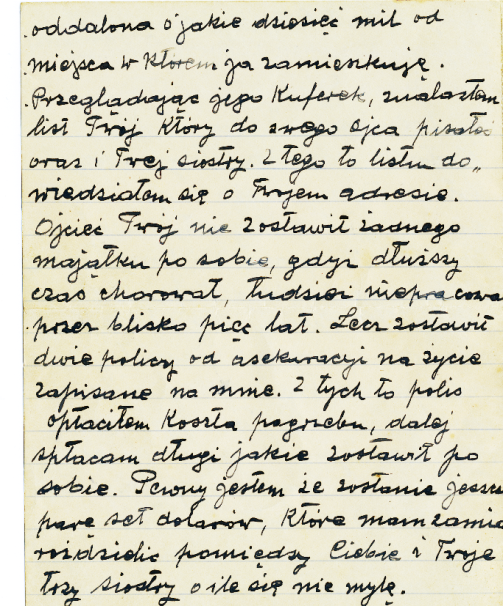 oddalona o jakie dziesięć mil od
miejsca w którem ja zamieszkuję.
Przeglądając jego Kuferek, znalazłem
list Twój Który do swego ojca pisałeś
oraz i Twej siostry. Z tego to listu do„
wiedziałem się o Twojem adresie.
Ojciec Twój nie zostawił żadnego
majątku po sobie, gdyż dłuższy
czas chorował, tudzież niepracował
przez blisko pięć lat. Lecz zostawił
dwie policy od asekuracyi na życie
zapisane na mnie. Z tych to polis
opłaciłem Koszta pogrzebu, dalej
spłacam długi jakie zostawił po
sobie. Pewny jestem że zostanie jeszcze
parę set dolarów, Które mam zamia
rozdzielić pomiędzy Ciebie i Twoje
trzy siostry o ile się nie mylę.